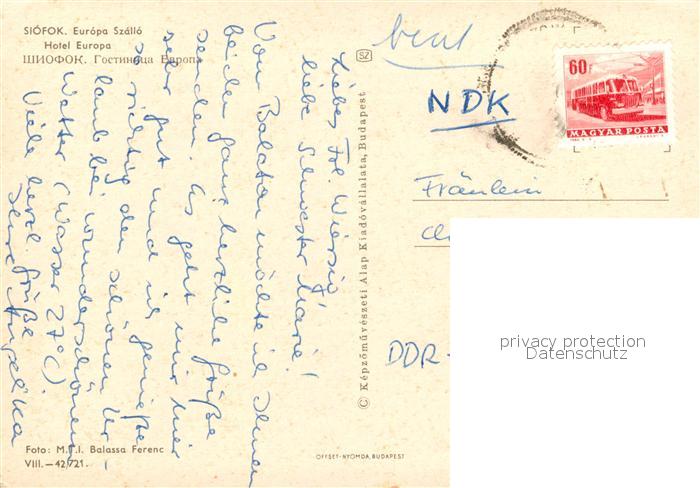 SIÓFOK. Európa Szálló
Hotel Europa
ШИОФОК. Гостиница Европа
Liebes Frl.
liebe Schwester Marie!
Vom Balaton möchte ich Ihnen
beiden ganz herzliche Grüße
senden. Es geht mir hier
sehr gut und ich genieße
so richtig den schönen Ur-
laub bei wunderschönem
Wetter (Wasser 27°C).
Viele herzl. Grüße
Ihre Angelika
Foto: M.T.I. Balassa Ferenc
VIII.—42/721.
SZ
© Képzőművészeti Alap Kiadóvállalata, Budapest
OFFSET-NYOMDA, BUDAPEST
NDK
60f
MAGYAR POSTA
Fräulein
DDR-
privacy protection
Datenschutz